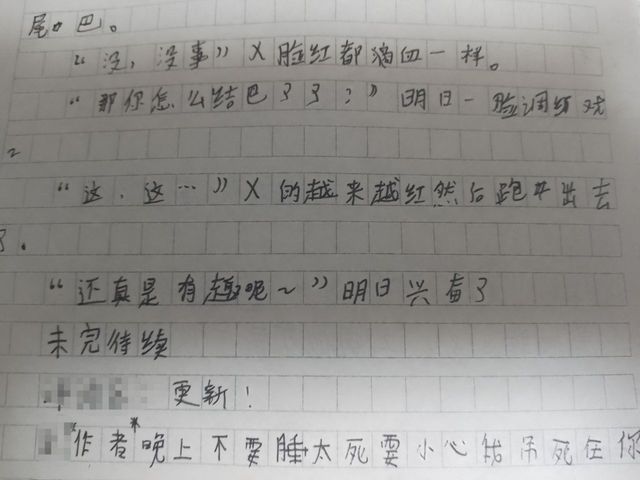 尾巴。
“没，没事”X脸红都滴血一样。
“那你怎么结巴了了？”明日一脸调戏
~
“这，这…”X的越来越红然后跑出去
了。
“还真是有趣呢~”明日兴奋了
未完待续
更新！
*作者*晚上不要睡太死要小心我吊死在你